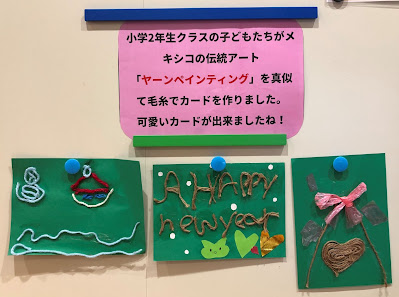 小学2年生クラスの子どもたちがメ
キシコの伝統アート
「ヤーンペインティング」を真似
て毛糸でカードを作りました。
可愛いカードが出来ましたね！
A HAPPY
new year